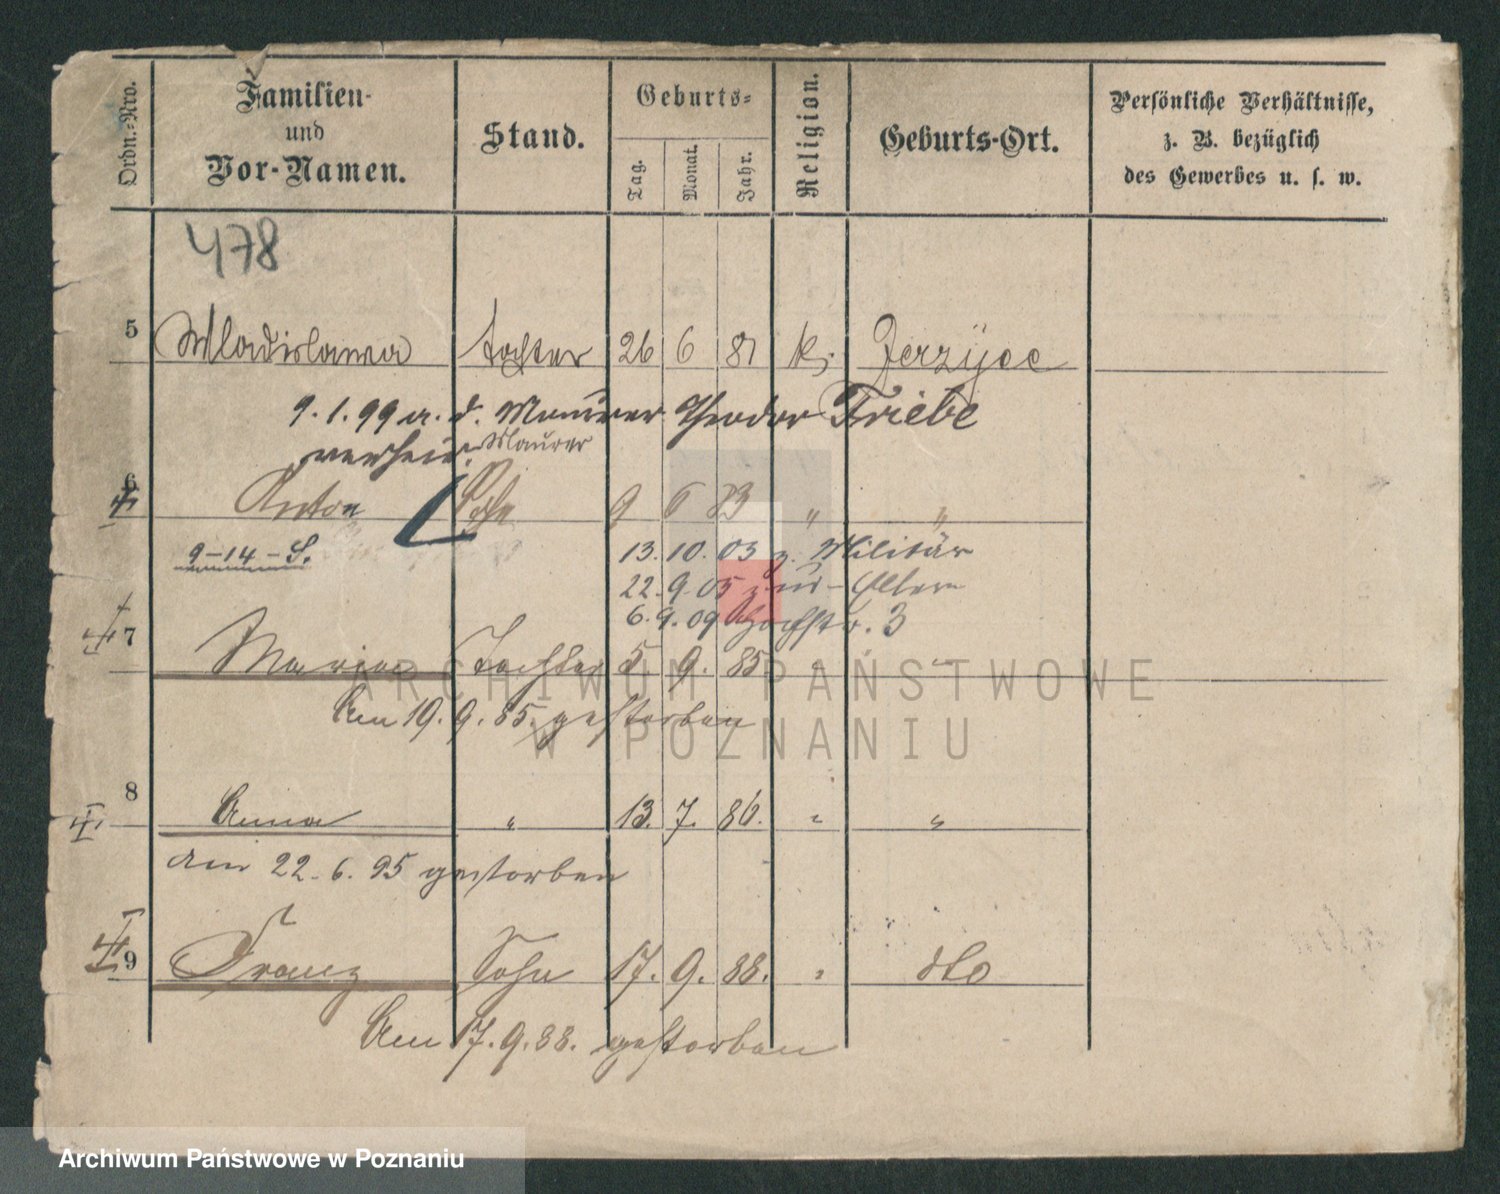 Ordn.-Nro.
Familien-
und
Vor-Namen.
Stand.
Geburts-
Tag. Monat. Jahr.
Religion.
Geburts-Ort.
Persönliche Verhältnisse,
z. B. bezüglich
des Gewerbes u. s. w.
478
5 Wladislawa Tochter 26 6 81 k. Jerzyce
9.1.99 a. d. Maurer Theodor Triebe
verheir.
Maurer
6 Anton Sohn 9 6 83 " "
9-14-S.
13. 10. 03 z. Militär
22. 9. 05 z. - Eltern
6. 9. 09 Hochstr. 3
7 Maria Tochter 5 9. 85. " "
Am 19. 9. 85. gestorben
8 Anna " 13. 7. 86. " "
am 22. 6. 95 gestorben
9 Franz Sohn 17. 9. 88. " dto
Am 17. 9. 88. gestorben
ARCHIWUM PAŃSTWOWE
W POZNANIU
Archiwum Państwowe w Poznaniu